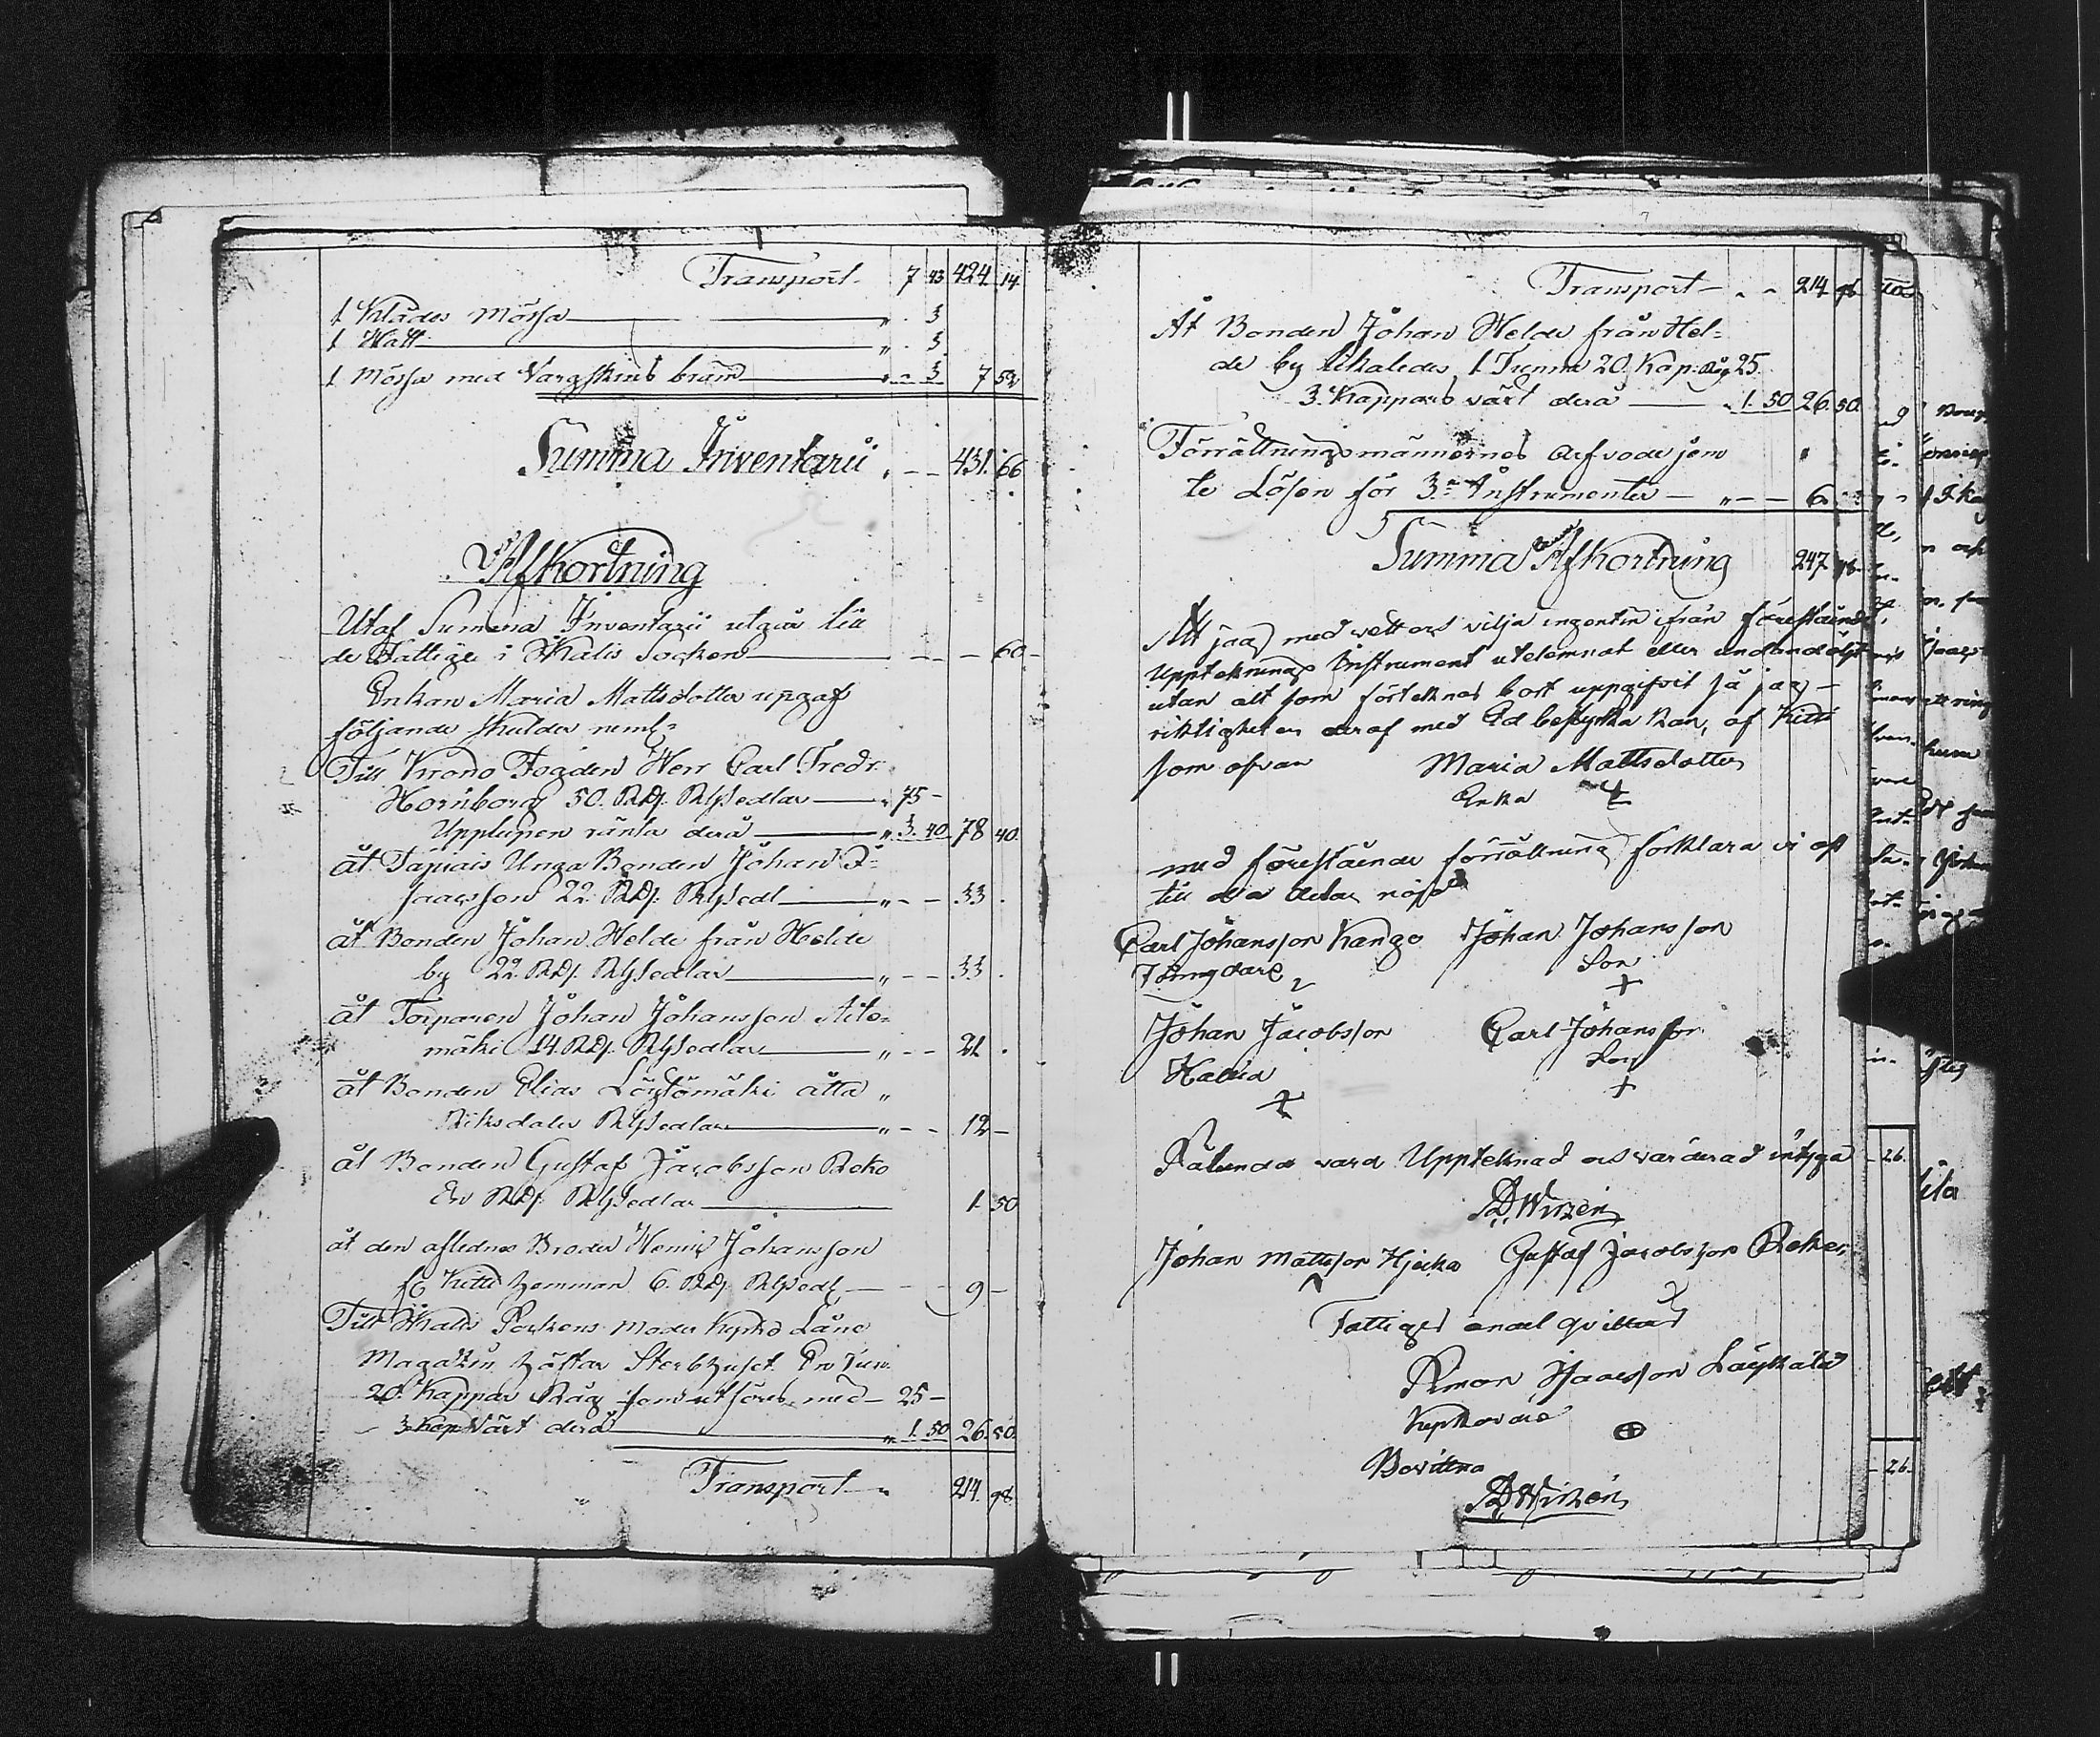 Transport 7 43 424. 14.
1 Klädes Mössa " . 3
1 Hatt " . 3
1 Mössa med Vargskins bräm " - 3 7 52
Summa Inventarii . - - 431. 66
Afkortning
Utaf Summa Inventarii utgår till
de Fattige i Socken - - - 60 -
Enkan Maria Mattsdotter upgaf
följande skulder neml:
Till Krono Fogden Herr Carl Fredr:
Hornborg 50. RDr. RGSedlar " 75 -
Upplupen ränta derå " 3. 40 78 40.
åt Unga Bonden Johan I-
saacsson 22. RDr. RGSedl " - - 33 .
åt Bonden Johan Helde från Helde
by 22. RDr. RGSedlar " - - 33 .
åt Torparen Johan Johansson Aito-
mäki 14. RDr. RGSedlar " - - 21 .
åt Bonden Elias Löytömäki åtta "
Riksdaler RGSedlar " - - 12 -
åt Bonden Gustaf Jacobsson Reko
En RDr. RGSedlar 1. 50
åt den aflednes Broder Henric Johansson
fr Kitti hemman 6. RDr. RGSedl - - 9 -
Till Sockens Moder Kyrko Låne
Magazin häftar Sterbhuset En Tun:
20. Kappar Råg som utföres med - 25 -
3 Kap: Växt derå " 1. 50 26. 50.
Transport " 214. 98.
Transport - . - 214 98
Åt Bonden Johan Helde från Hel-
de by likaledes 1 Tunna 20. Kap: Råg 25.
3. Kappars växt derå . 1. 50 26. 50.
Förrättningsmännernes Arfvode jem
te Lösen för 3ne Instrumenter - " - - 6.
Summa Afkortning 247 98
Att jag med vett och vilja ingenting ifrån förestående
Uppteknings Instrument utelemnat eller undandöljt
utan alt som förteknes bort uppgifvit så jag -
riktigheten deraf med Ed bestyrka kan, af Kitti
som ofvan Maria Mattsdotter
Enka
med förestående förrättning förklara vi oss
till alla delar nöjd
Carl Johansson Kango Johan Johansson
Son
+
Johan Jacobsson Carl Johansson
Son
+
Sålunda vara Uppteknad och värderad intyga
Wirzén
Johan Mattsson Hjerko Gustaf Jacobsson Reko
Fattiges andel qvitteras
Simon Isaacsson
Kyrkovärd
Bevittna
Wirzén